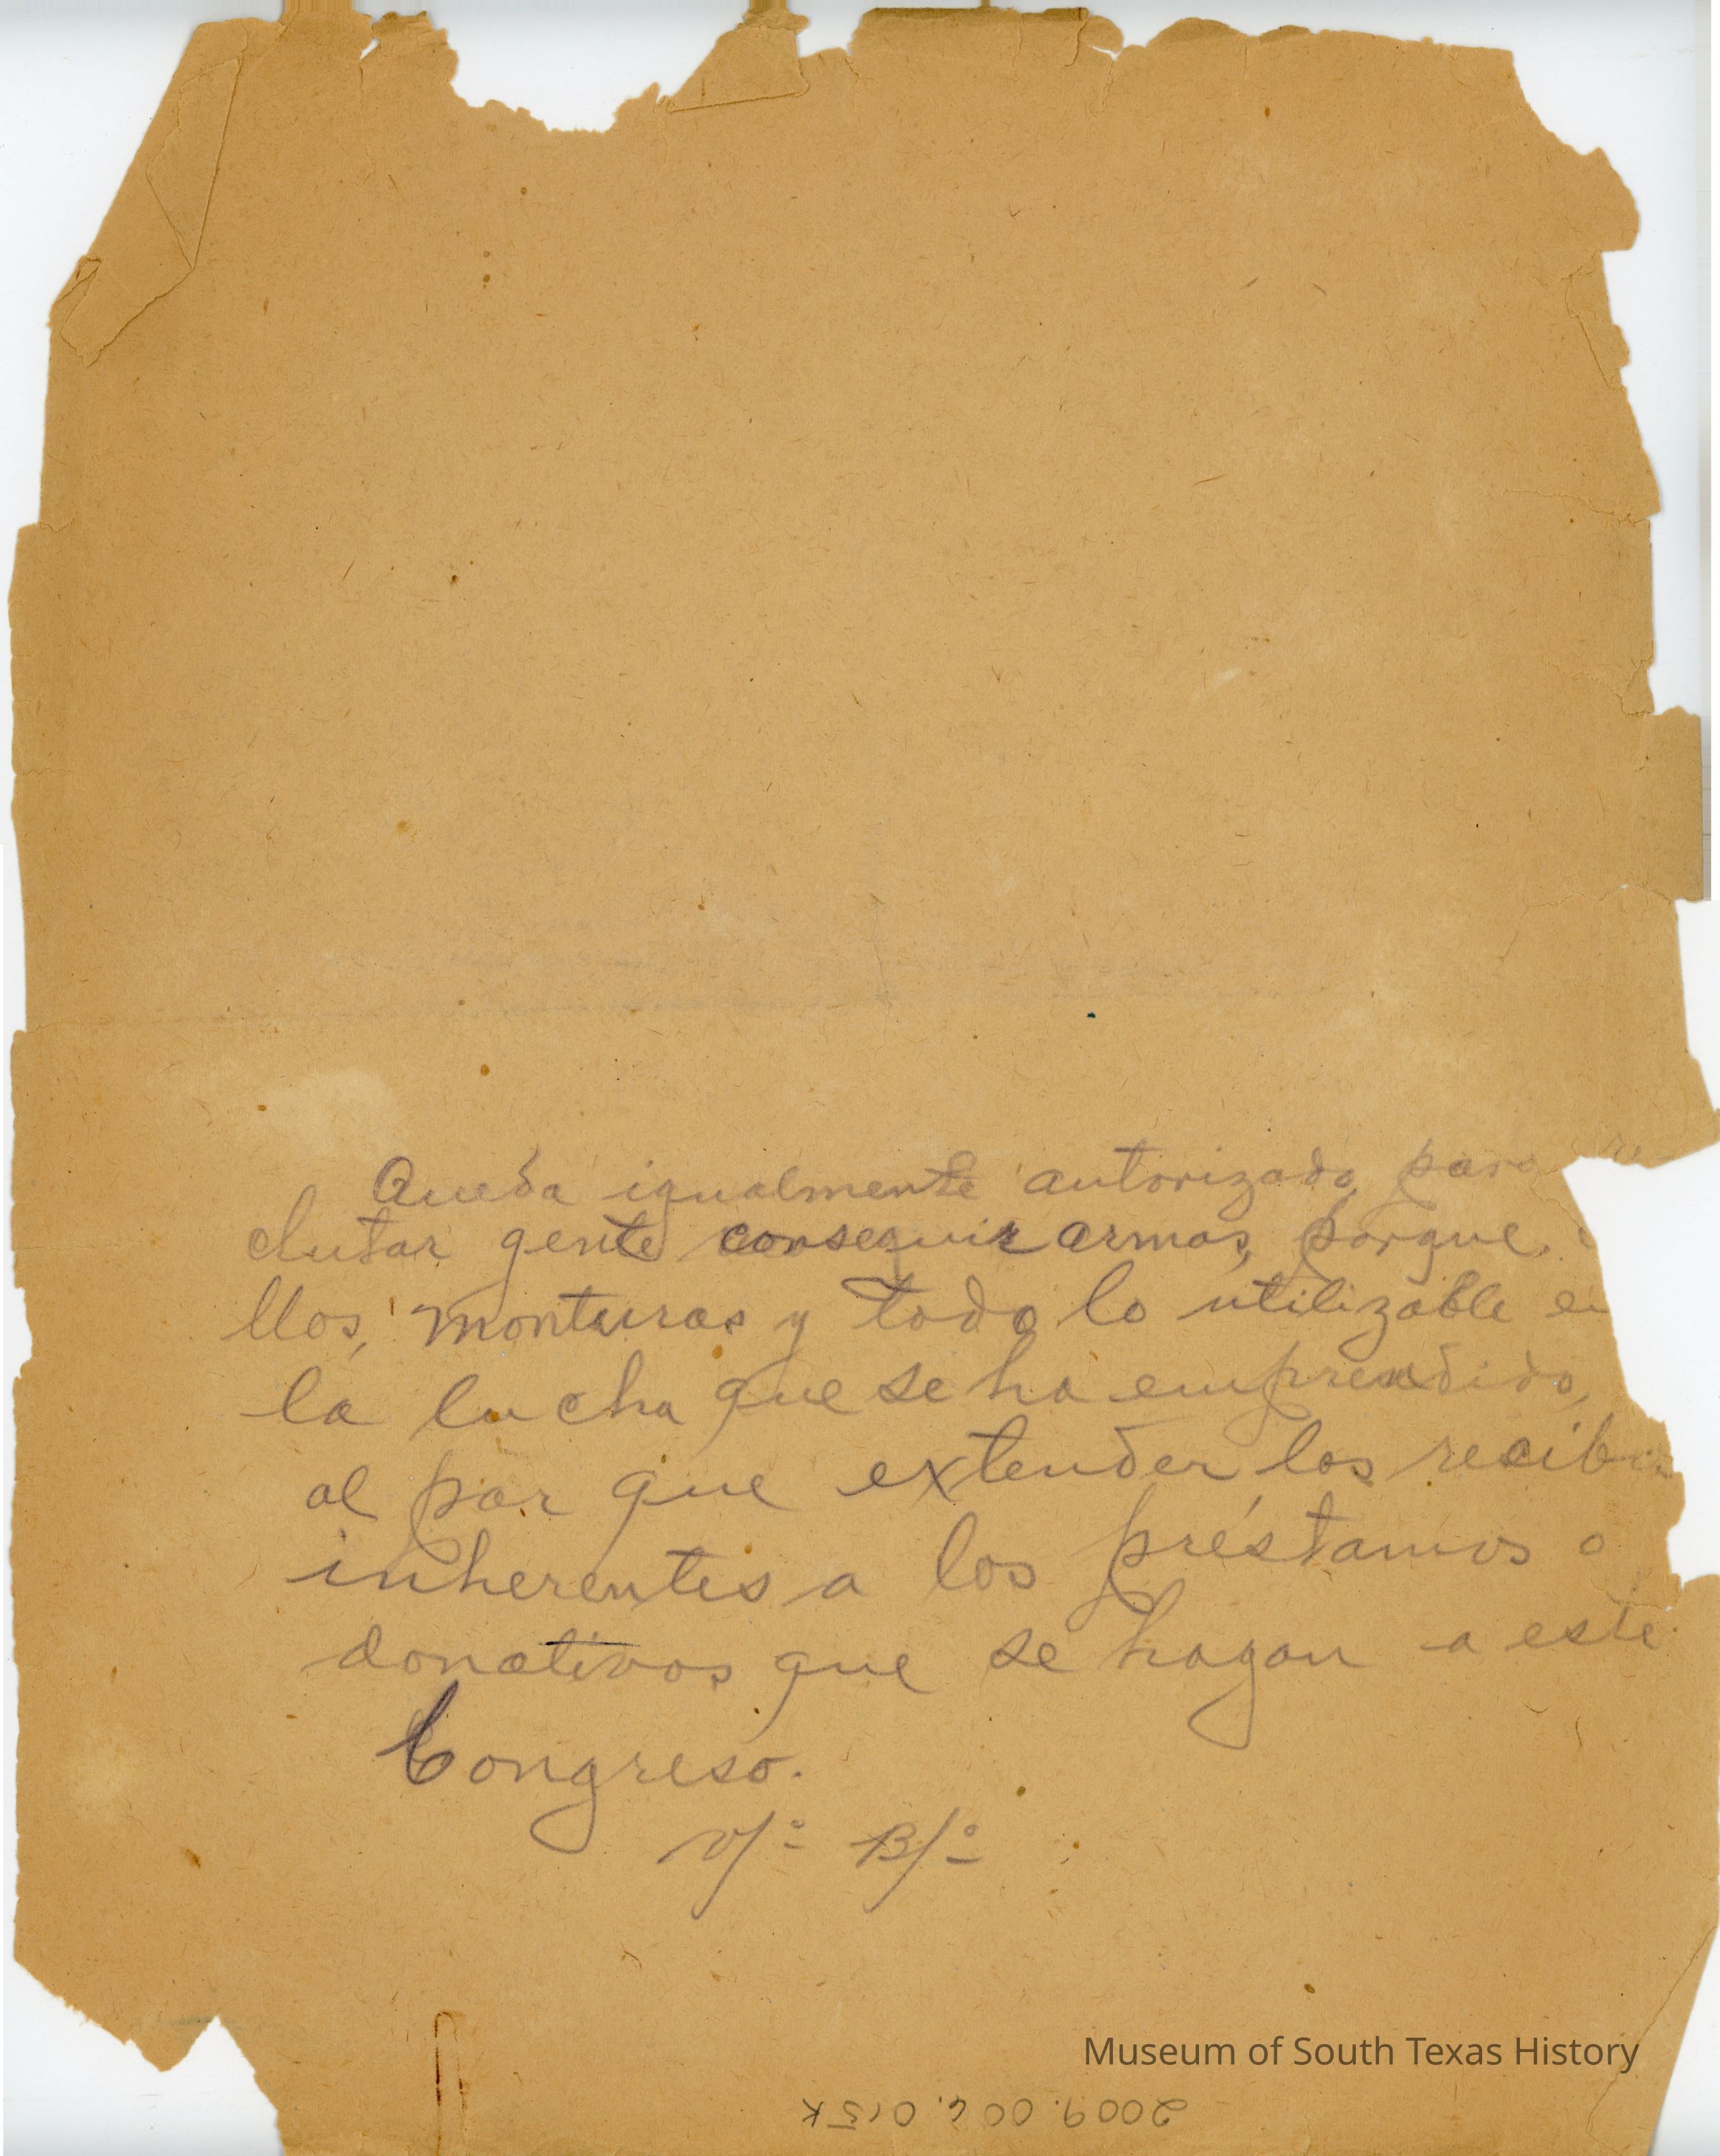 Queda igualmente autorizado para re
clutar gente conseguir armas, parque,
llos, monturas y todo lo utilizable en
la lucha que se ha emprendido,
al par que extender los recibos
inherentes a los préstamos o
donativos que se hagan a este
Congreso.
V/º B/º
Museum of South Texas History
2009.006.015K